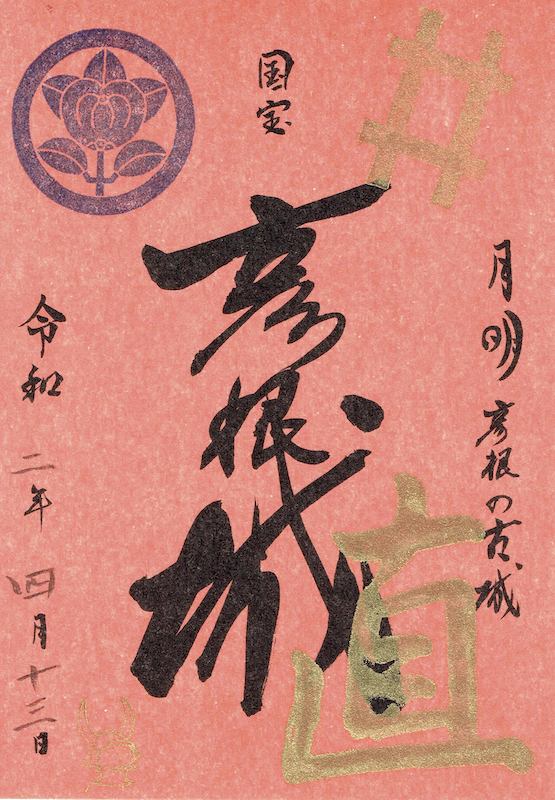 月明 彦根の古城
井
直
国宝
彦根城
令和 二年 四月十三日